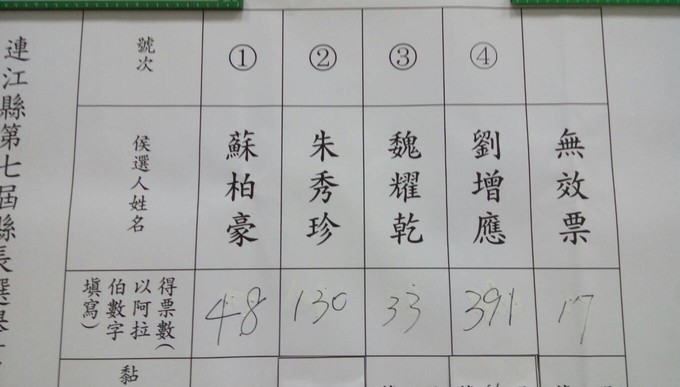 連江縣第七屆縣長選舉
號次
①
②
③
④
候選人姓名
蘇柏豪
朱秀珍
魏耀乾
劉增應
無效票
得票數(
以阿拉
伯數字
填寫)
48
130
33
391
17
黏